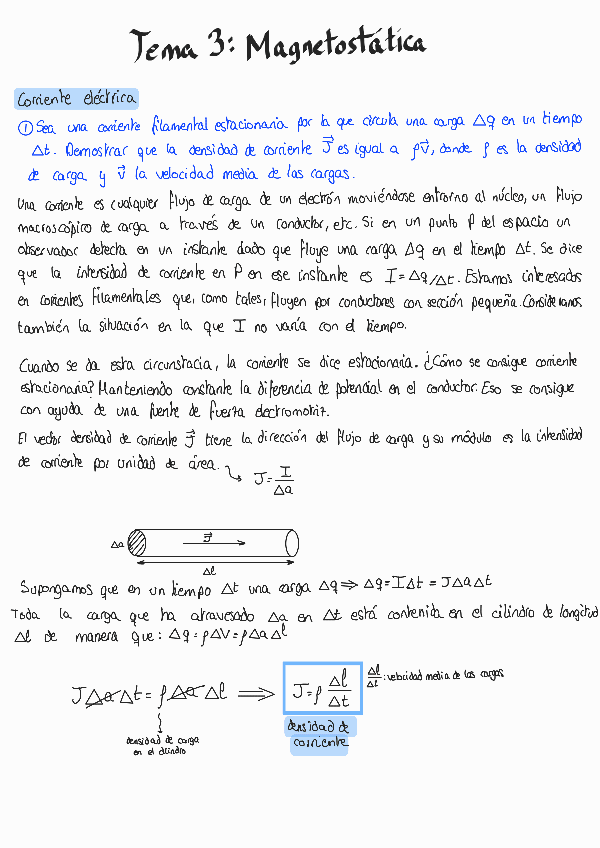 Tema 3: Magnetostática
Corriente eléctrica
① Sea una corriente filamental estacionaria por la que circula una carga Δq en un tiempo
Δt. Demostrar que la densidad de corriente J⃗ es igual a ρv⃗, donde ρ es la densidad
de carga y v⃗ la velocidad media de las cargas.
Una corriente es cualquier flujo de carga de un electrón moviéndose entorno al núcleo, un flujo
macroscópico de carga a través de un conductor, etc. Si en un punto P del espacio un
observador detecta en un instante dado que fluye una carga Δq en el tiempo Δt. Se dice
que la intensidad de corriente en P en ese instante es I = Δq/Δt. Estamos interesados
en corrientes filamentales que, como tales, fluyen por conductores con sección pequeña. Consideramos
también la situación en la que I no varía con el tiempo.
Cuando se da esta circunstacia, la corriente se dice estacionaria. ¿Cómo se consigue corriente
estacionaria? Manteniendo constante la diferencia de potencial en el conductor. Eso se consigue
con ayuda de una fuente de fuerza electromotriz.
El vector densidad de corriente J⃗ tiene la dirección del flujo de carga y su módulo es la intensidad
de corriente por unidad de área. ↳ J = I/Δa
Δa J⃗
Δl
Supongamos que en un tiempo Δt una carga Δq ⇒ Δq = IΔt = JΔaΔt
Toda la carga que ha atravesado Δa en Δt está contenida en el cilindro de longitud
Δl de manera que: Δq = ρΔV = ρΔaΔl
JΔaΔt = ρΔaΔl ⟹ J = ρ Δl/Δt Δl/Δt : velocidad media de las cargas
densidad de carga
en el cilindro
densidad de
corriente